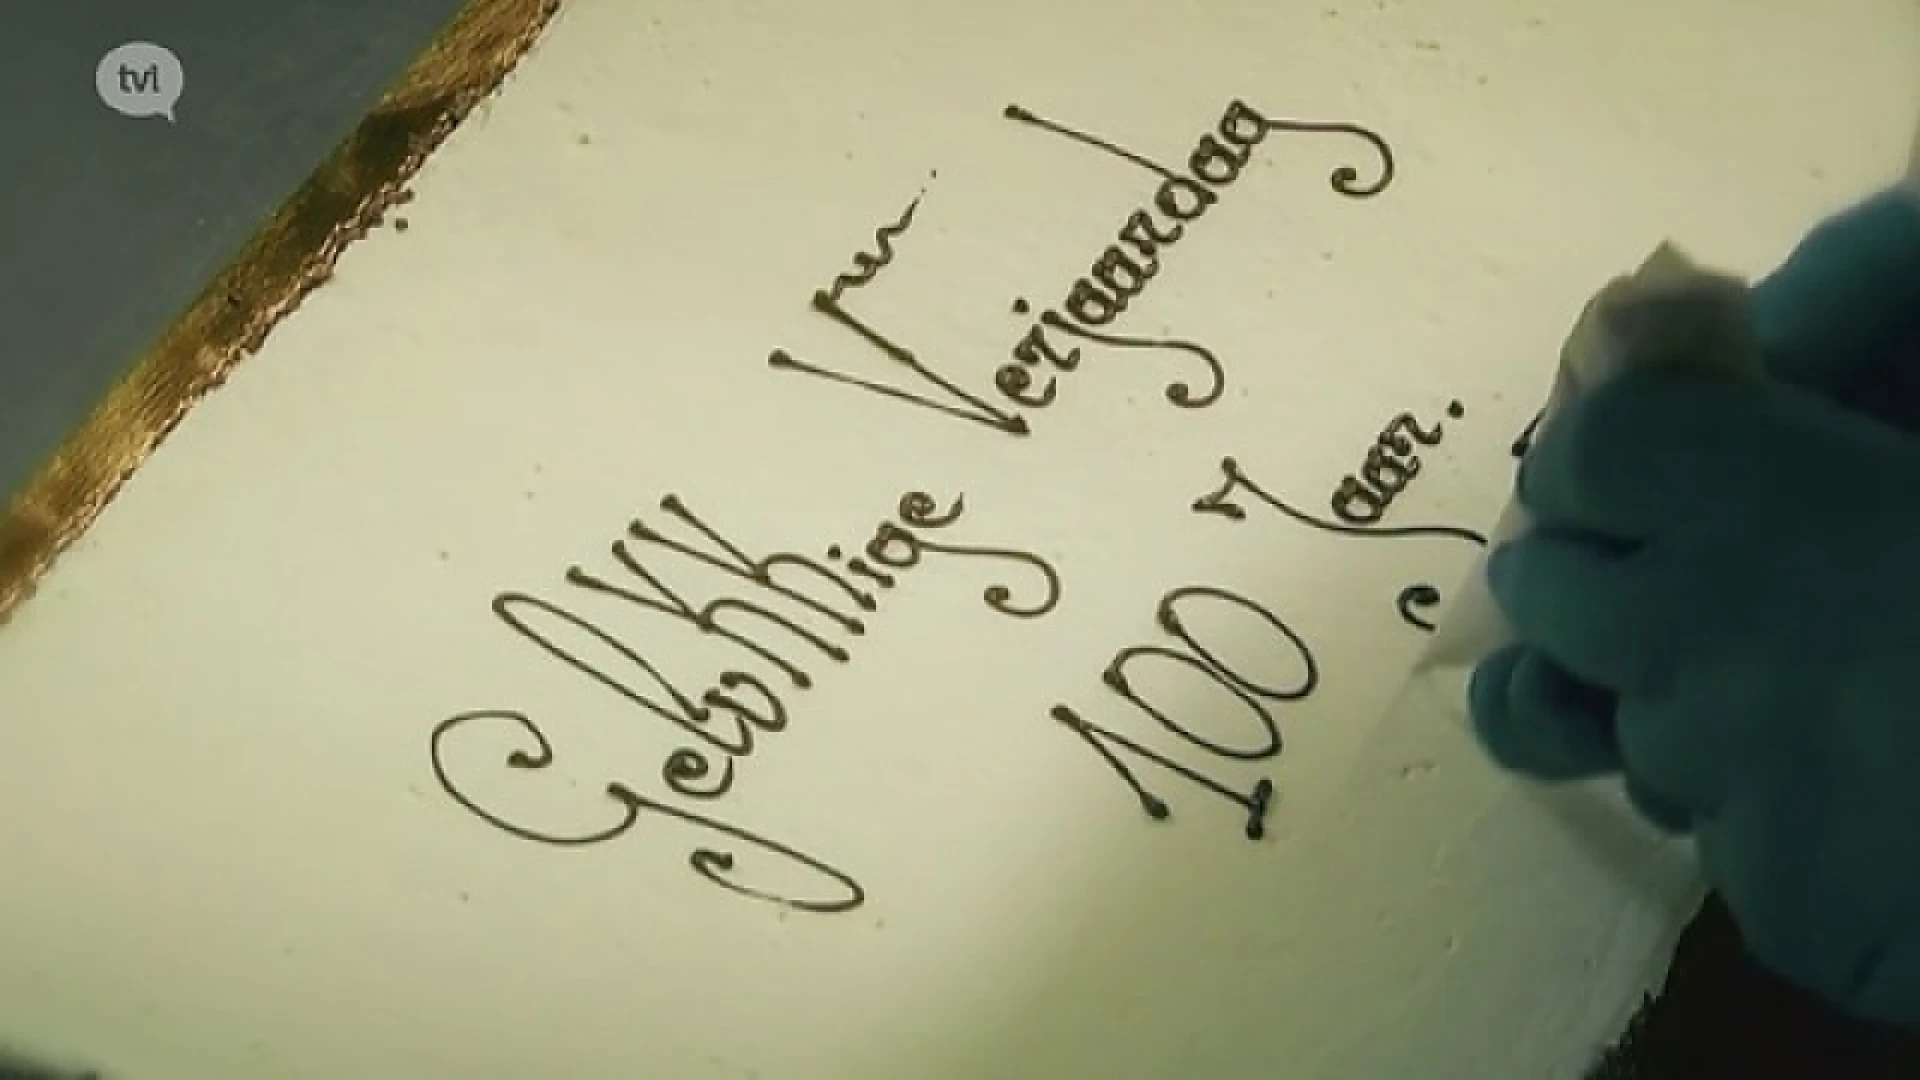 tvl
Gelukkige Verjaardag
100 Jaar.